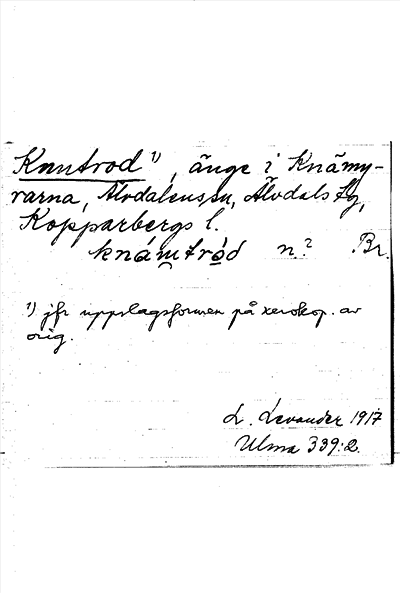 Knutrod 1), änge i Knämy-
rarna, Älvdalens sn, Älvdals tg,
Kopparbergs l.
knámtród n.? Br.
1) jfr uppslagsformen på xerokop. av
orig.
L. Levander 1917
Ulma 339:2.